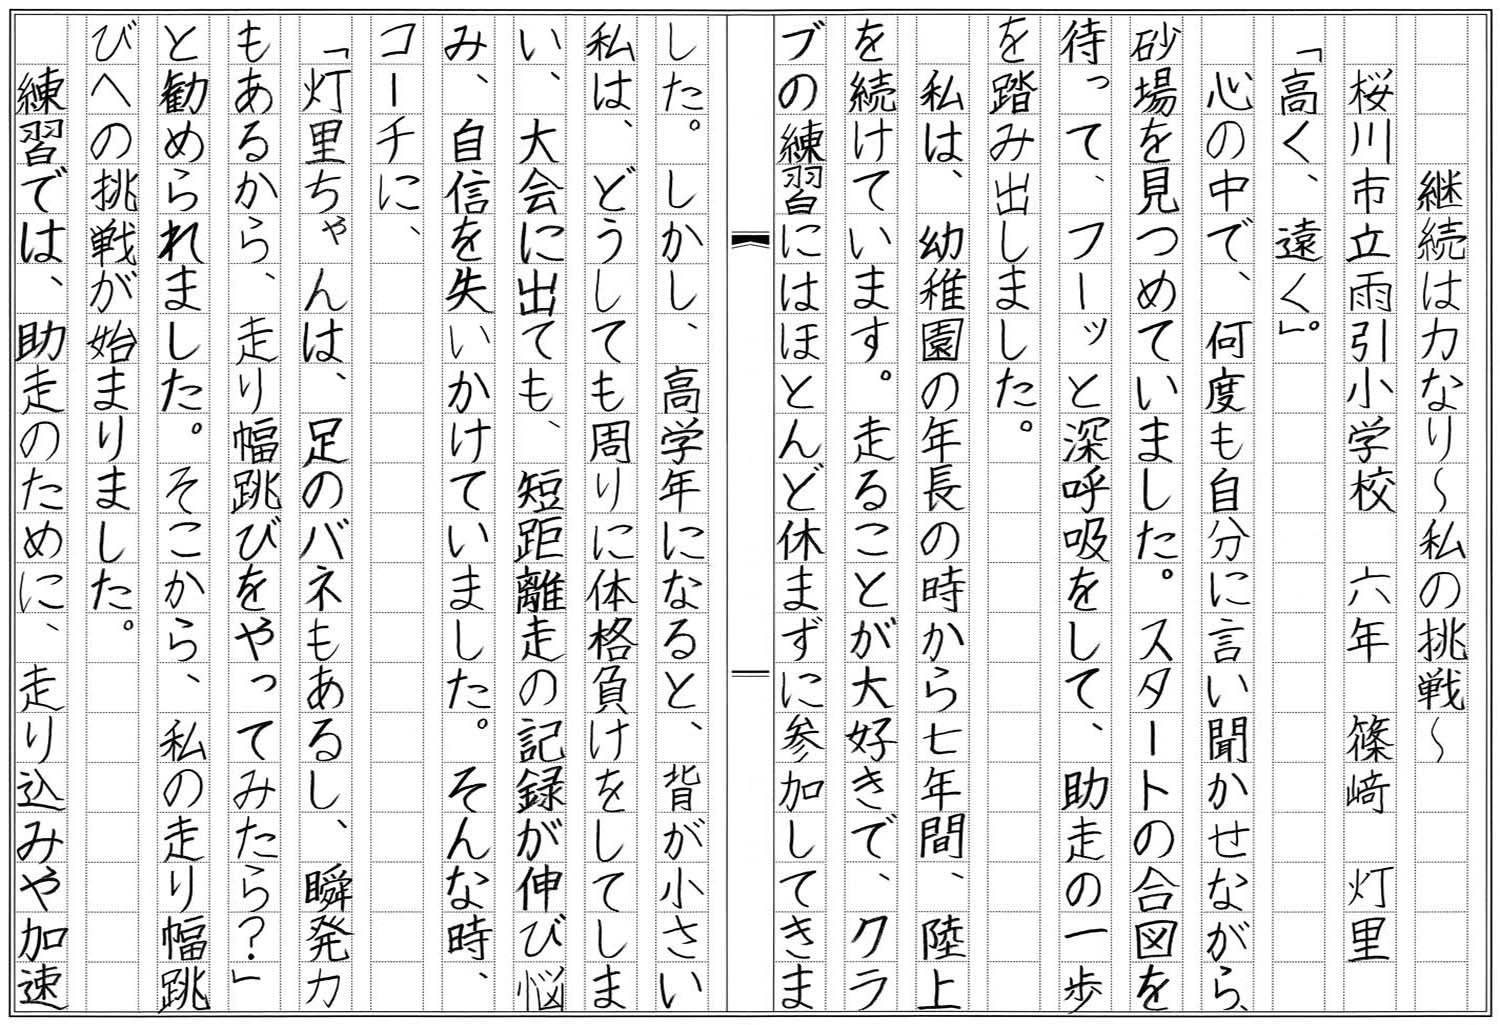 継続は力なり～私の挑戦～
桜川市立雨引小学校　六年　篠﨑　灯里
「高く、遠く」。
心の中で、何度も自分に言い聞かせながら、
砂場を見つめていました。スタートの合図を
待って、フーッと深呼吸をして、助走の一歩
を踏み出しました。
私は、幼稚園の年長の時から七年間、陸上
を続けています。走ることが大好きで、クラ
ブの練習にはほとんど休まずに参加してきま
した。しかし、高学年になると、背が小さい
私は、どうしても周りに体格負けをしてしま
い、大会に出ても、短距離走の記録が伸び悩
み、自信を失いかけていました。そんな時、
コーチに、
「灯里ちゃんは、足のバネもあるし、瞬発力
もあるから、走り幅跳びをやってみたら？」
と勧められました。そこから、私の走り幅跳
びへの挑戦が始まりました。
練習では、助走のために、走り込みや加速